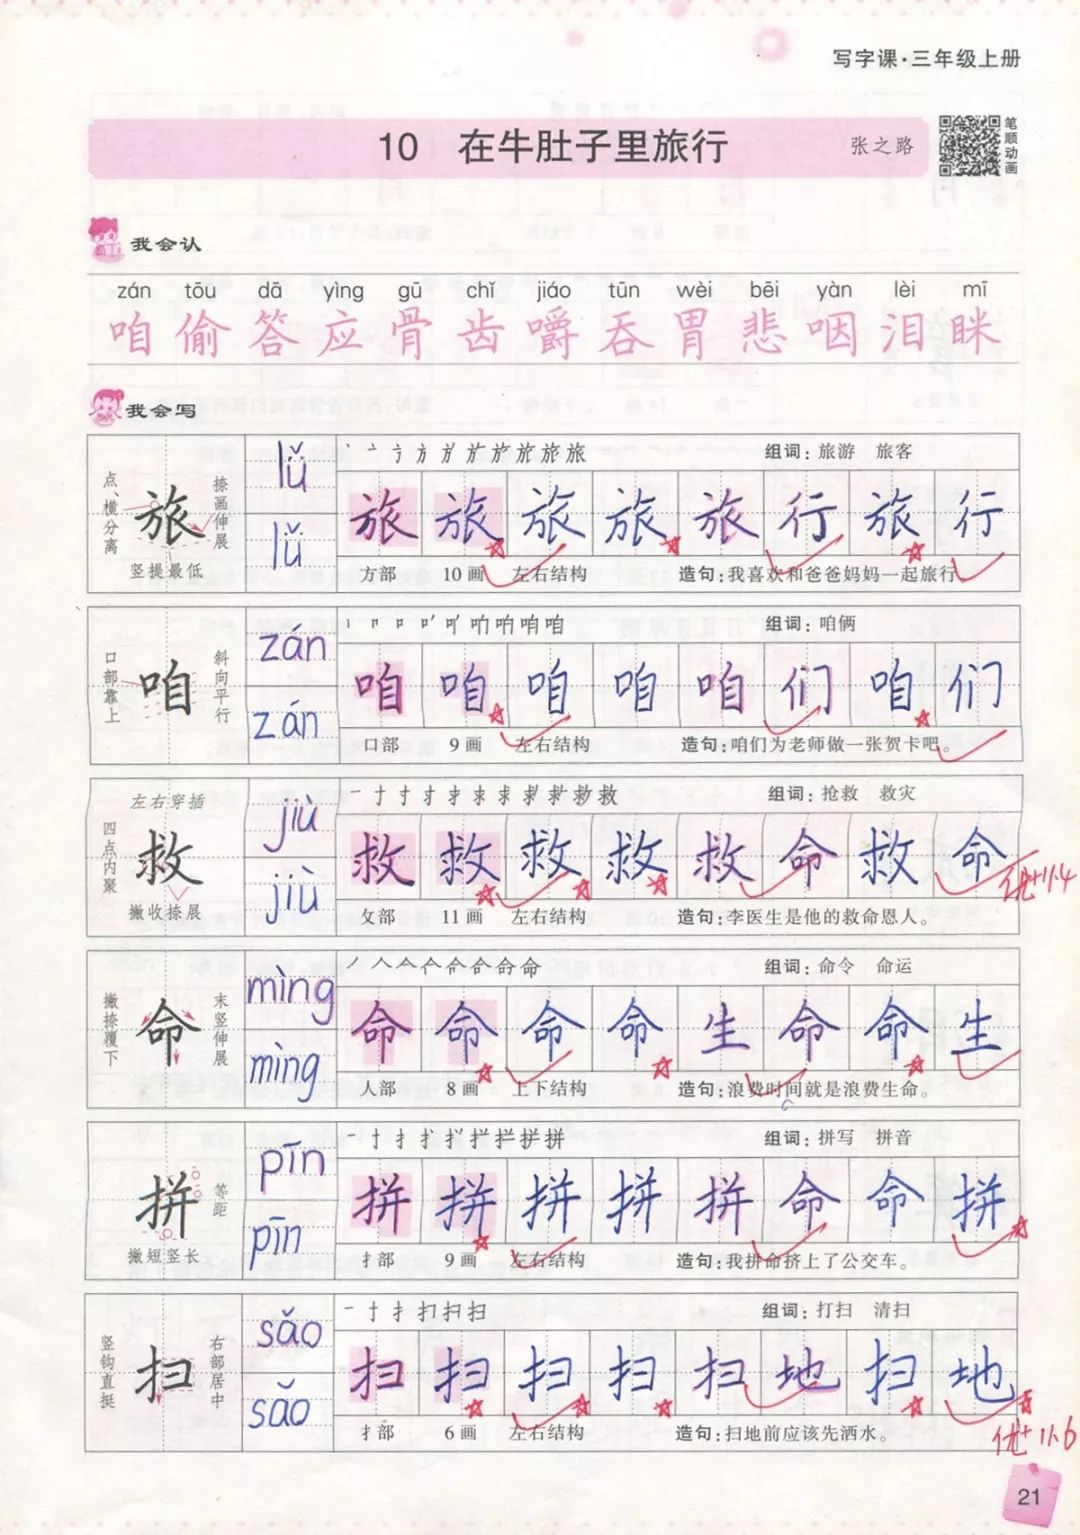 写字课·三年级上册
10 在牛肚子里旅行 张之路
笔顺动画
我会认
zán tōu dā yìng gū chǐ jiáo tūn wèi bēi yàn lèi mī
咱 偷 答 应 骨 齿 嚼 吞 胃 悲 咽 泪 眯
我会写
点、横分离 旅 捺画伸展
竖提最低
lǚ
lǚ
组词：旅游 旅客
旅 旅 旅 旅 旅 行 旅 行
方部 10画 左右结构 造句：我喜欢和爸爸妈妈一起旅行
口部靠上 咱 斜向平行
zán
zán
组词：咱俩
咱 咱 咱 咱 咱 们 咱 们
口部 9画 左右结构 造句：咱们为老师做一张贺卡吧。
左右穿插
四点内聚 救
撇收捺展
jiù
jiù
组词：抢救 救灾
救 救 救 救 救 命 救 命
优+11.4
攵部 11画 左右结构 造句：李医生是他的救命恩人。
撇捺覆下 命 末竖伸展
mìng
mìng
组词：命令 命运
命 命 命 命 生 命 命 生
人部 8画 上下结构 造句：浪费时间就是浪费生命。
拼 等距
撇短竖长
pīn
pīn
组词：拼写 拼音
拼 拼 拼 拼 拼 命 命 拼
扌部 9画 左右结构 造句：我拼命挤上了公交车。
竖钩直挺 扫 右部居中
sǎo
sǎo
组词：打扫 清扫
扫 扫 扫 扫 扫 地 扫 地
扌部 6画 左右结构 造句：扫地前应该先洒水。
优+11.6
21